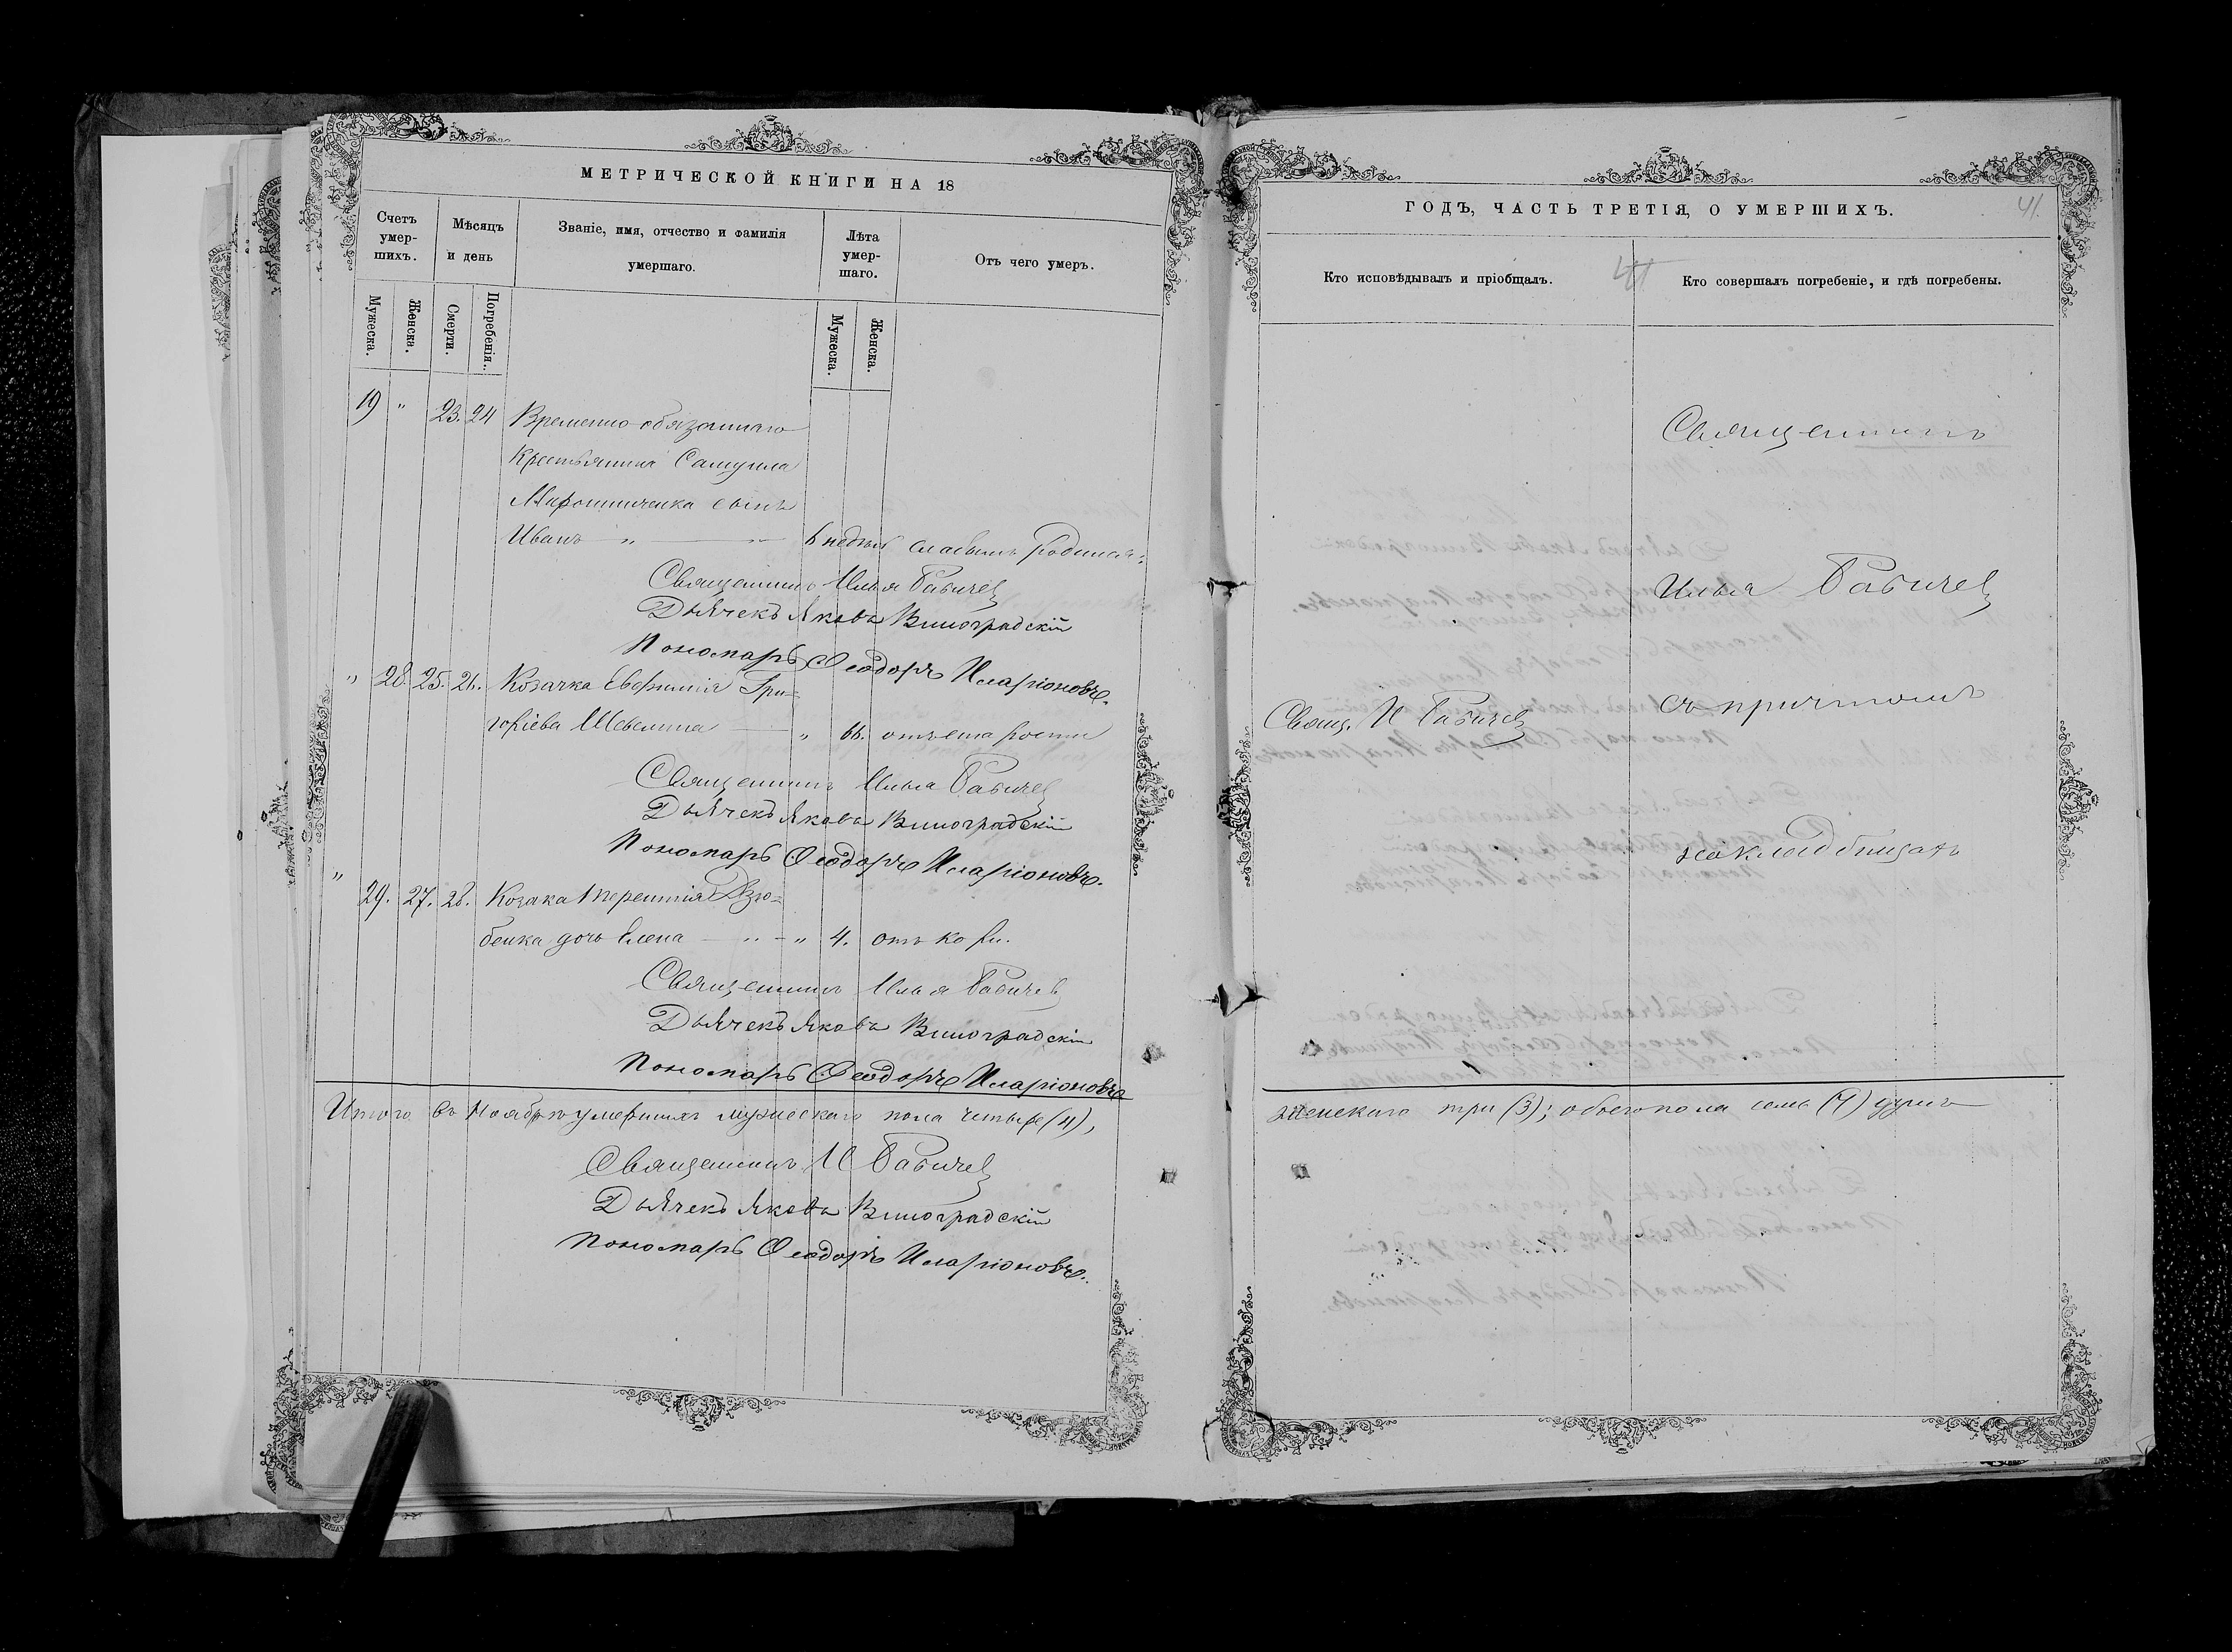 МЕТРИЧЕСКОЙ КНИГИ НА 18
Счетъ умер- шихъ.
Мѣсяцъ и день
Званіе, имя, отчество и фамилія умершаго.
Лѣта умер- шаго.
Отъ чего умеръ.
Мужеска.
Женска.
Смерти.
Погребенія.
Мужеска.
Женска.
19 " 23. 24 Временно-обязаннаго
Крестьянина Самуила
Мирошниченка сынъ
Иванъ " — " 6 недѣль слабымъ родился.
Священникъ Илья Бабичев
Дьячекъ Яковъ Виноградскій
Пономарь Ѳеодоръ Иларіоновъ.
" 28. 25. 26. Козачка Евфимія Гри=
горіева Шевелина — " 66. отъ старости
Священникъ Илья Бабичев
Дьячекъ Яковъ Виноградскій
Пономарь Ѳеодоръ Иларіоновъ.
" 29. 27. 28. Козака Терентія Дзю=
бенка дочь Елена — " - " 4. отъ кори.
Священникъ Илья Бабичев
Дьячекъ Яковъ Виноградскій
Пономарь Ѳеодоръ Иларіоновъ
Итого въ Ноябрѣ умершихъ мужескаго пола четыре (4),
Священникъ И Бабичев
Дьячекъ Яковъ Виноградскій
Пономарь Ѳеодоръ Иларіоновъ.
ГОДЪ, ЧАСТЬ ТРЕТІЯ, О УМЕРШИХЪ.
41.
Кто исповѣдывалъ и пріобщалъ.
41
Кто совершалъ погребеніе, и гдѣ погребены.
Священникъ
Илья Бабичев
Свящ. И Бабичев
съ причтомъ
на кладбищахъ
женскаго три (3); обоего пола семь (7) душъ